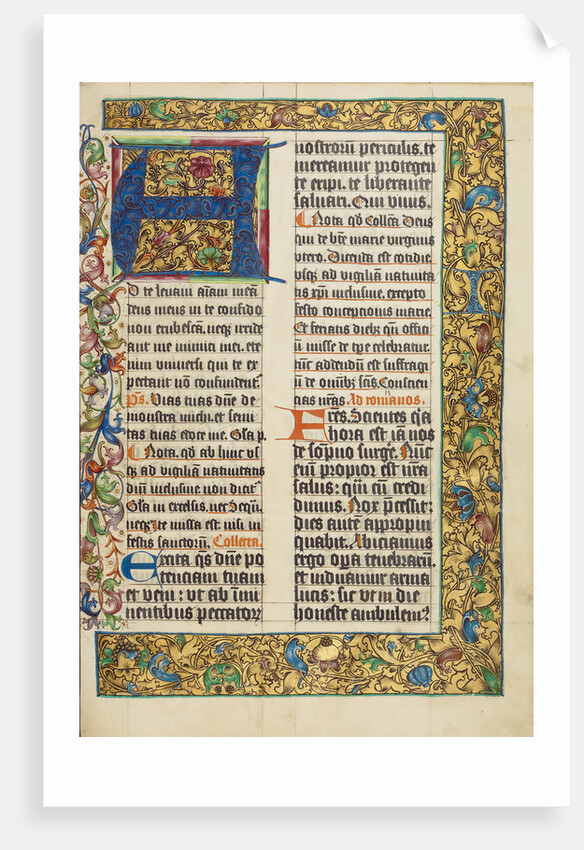 A
D te levavi aīam meā
deus meus in te confido
non erubescā. neqʒ irride
ant me inimici mei. ete
nim universi qui te ex
pectant nō confundentʳ
p̄s. Vias tuas dn̄e de
monstra michi. et semi
tas tuas edoce me. Gl̄a p.
Nota. qd̓ ab hinc vs
qʒ ad vigiliam nativitatis
dn̄i inclusive non dicitʳ
Gl̄a in excelsis. nec Sequn̄.
neqʒ Ite missa est. nisi in
festis sanctorū. Collecta.
Excita qs̄ dn̄e po
tenciam tuam
et veni: ut ab im̄i
nentibus peccatorʒ
nostrorum periculis. te
mereamur protegen
te eripi. te liberante
salvari. Qui vivis.
Nota qd̓ Coll̄cā. Deus
qui de bt̄e marie virginis
utero. Dicenda est cottidie
usqʒ ad vigiliam nativita
tis xp̄i inclusive. excepto
festo concepcionis marie.
Et feriatis diebʒ qn̄ offici
ū misse de tp̄e celebratur.
tūc addendum est suffragi
ū de omībʒ sc̄is. Conscien
cias nr̄as. Ad romanos.
Fres. Scientes q̓a
hora est iā nos
de sopno surge. Nūc
enī propior est nr̄a
salus: qui cū credi
dimus. Nox p̄cessit:
dies autē appropin
quabit. Abiciamus
ergo op̄a tenebrarū.
et induamur arma
lucis: sic ut in die
honeste ambulemʒ